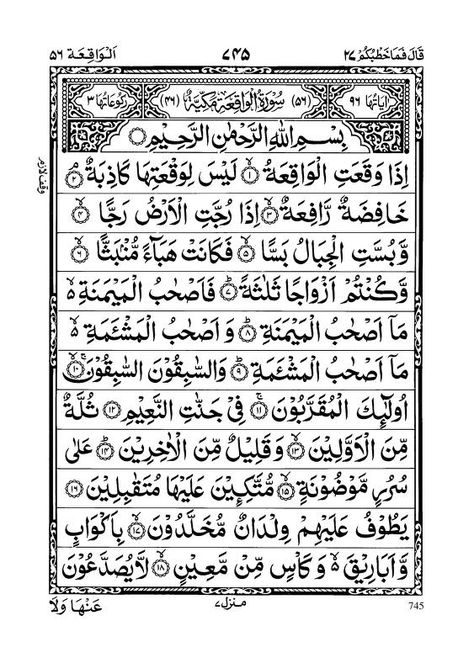 قَالَ فَمَا خَطْبُكُمْ ۲۷ ۷۴۵ اَلْوَاقِعَة ۵۶
اٰيَاتُهَا ۹۶ (۵۶) سُوْرَةُ الْوَاقِعَةِ مَكِّيَّةٌ (۴۶) رُكُوْعَاتُهَا ۳
بِسْمِ اللّٰهِ الرَّحْمٰنِ الرَّحِيْمِ
اِذَا وَقَعَتِ الْوَاقِعَةُ ۙ‏﴿۱﴾ لَيْسَ لِوَقْعَتِهَا كَاذِبَةٌ ۘ‏﴿۲﴾
خَافِضَةٌ رَّافِعَةٌ ۙ‏﴿۳﴾ اِذَا رُجَّتِ الْاَرْضُ رَجًّا ۙ‏﴿۴﴾
وَّبُسَّتِ الْجِبَالُ بَسًّا ۙ‏﴿۵﴾ فَكَانَتْ هَبَآءً مُّنْۢبَثًّا ۙ‏﴿۶﴾
وَّكُنْتُمْ اَزْوَاجًا ثَلٰثَةً ؕ‏﴿۷﴾ فَاَصْحٰبُ الْمَيْمَنَةِ ۙ۬
مَاۤ اَصْحٰبُ الْمَيْمَنَةِ ؕ‏﴿۸﴾ وَ اَصْحٰبُ الْمَشْـَٔمَةِ ۙ۬
مَاۤ اَصْحٰبُ الْمَشْـَٔمَةِ ؕ‏﴿۹﴾ وَالسّٰبِقُوْنَ السّٰبِقُوْنَ ۚۙ‏﴿۱۰﴾
اُولٰٓئِكَ الْمُقَرَّبُوْنَ ۚ‏﴿۱۱﴾ فِيْ جَنّٰتِ النَّعِيْمِ ‏﴿۱۲﴾ ثُلَّةٌ
مِّنَ الْاَوَّلِيْنَ ۙ‏﴿۱۳﴾ وَقَلِيْلٌ مِّنَ الْاٰخِرِيْنَ ؕ‏﴿۱۴﴾ عَلٰى
سُرُرٍ مَّوْضُوْنَةٍ ۙ‏﴿۱۵﴾ مُّتَّكِـِٕيْنَ عَلَيْهَا مُتَقٰبِلِيْنَ ‏﴿۱۶﴾
يَطُوْفُ عَلَيْهِمْ وِلْدَانٌ مُّخَلَّدُوْنَ ۙ‏﴿۱۷﴾ بِاَكْوَابٍ
وَّاَبَارِيْقَ ۙ۬ وَكَاْسٍ مِّنْ مَّعِيْنٍ ۙ‏﴿۱۸﴾ لَّا يُصَدَّعُوْنَ
عَنْهَا وَلَا منزل ۷ 745
وقف لازم